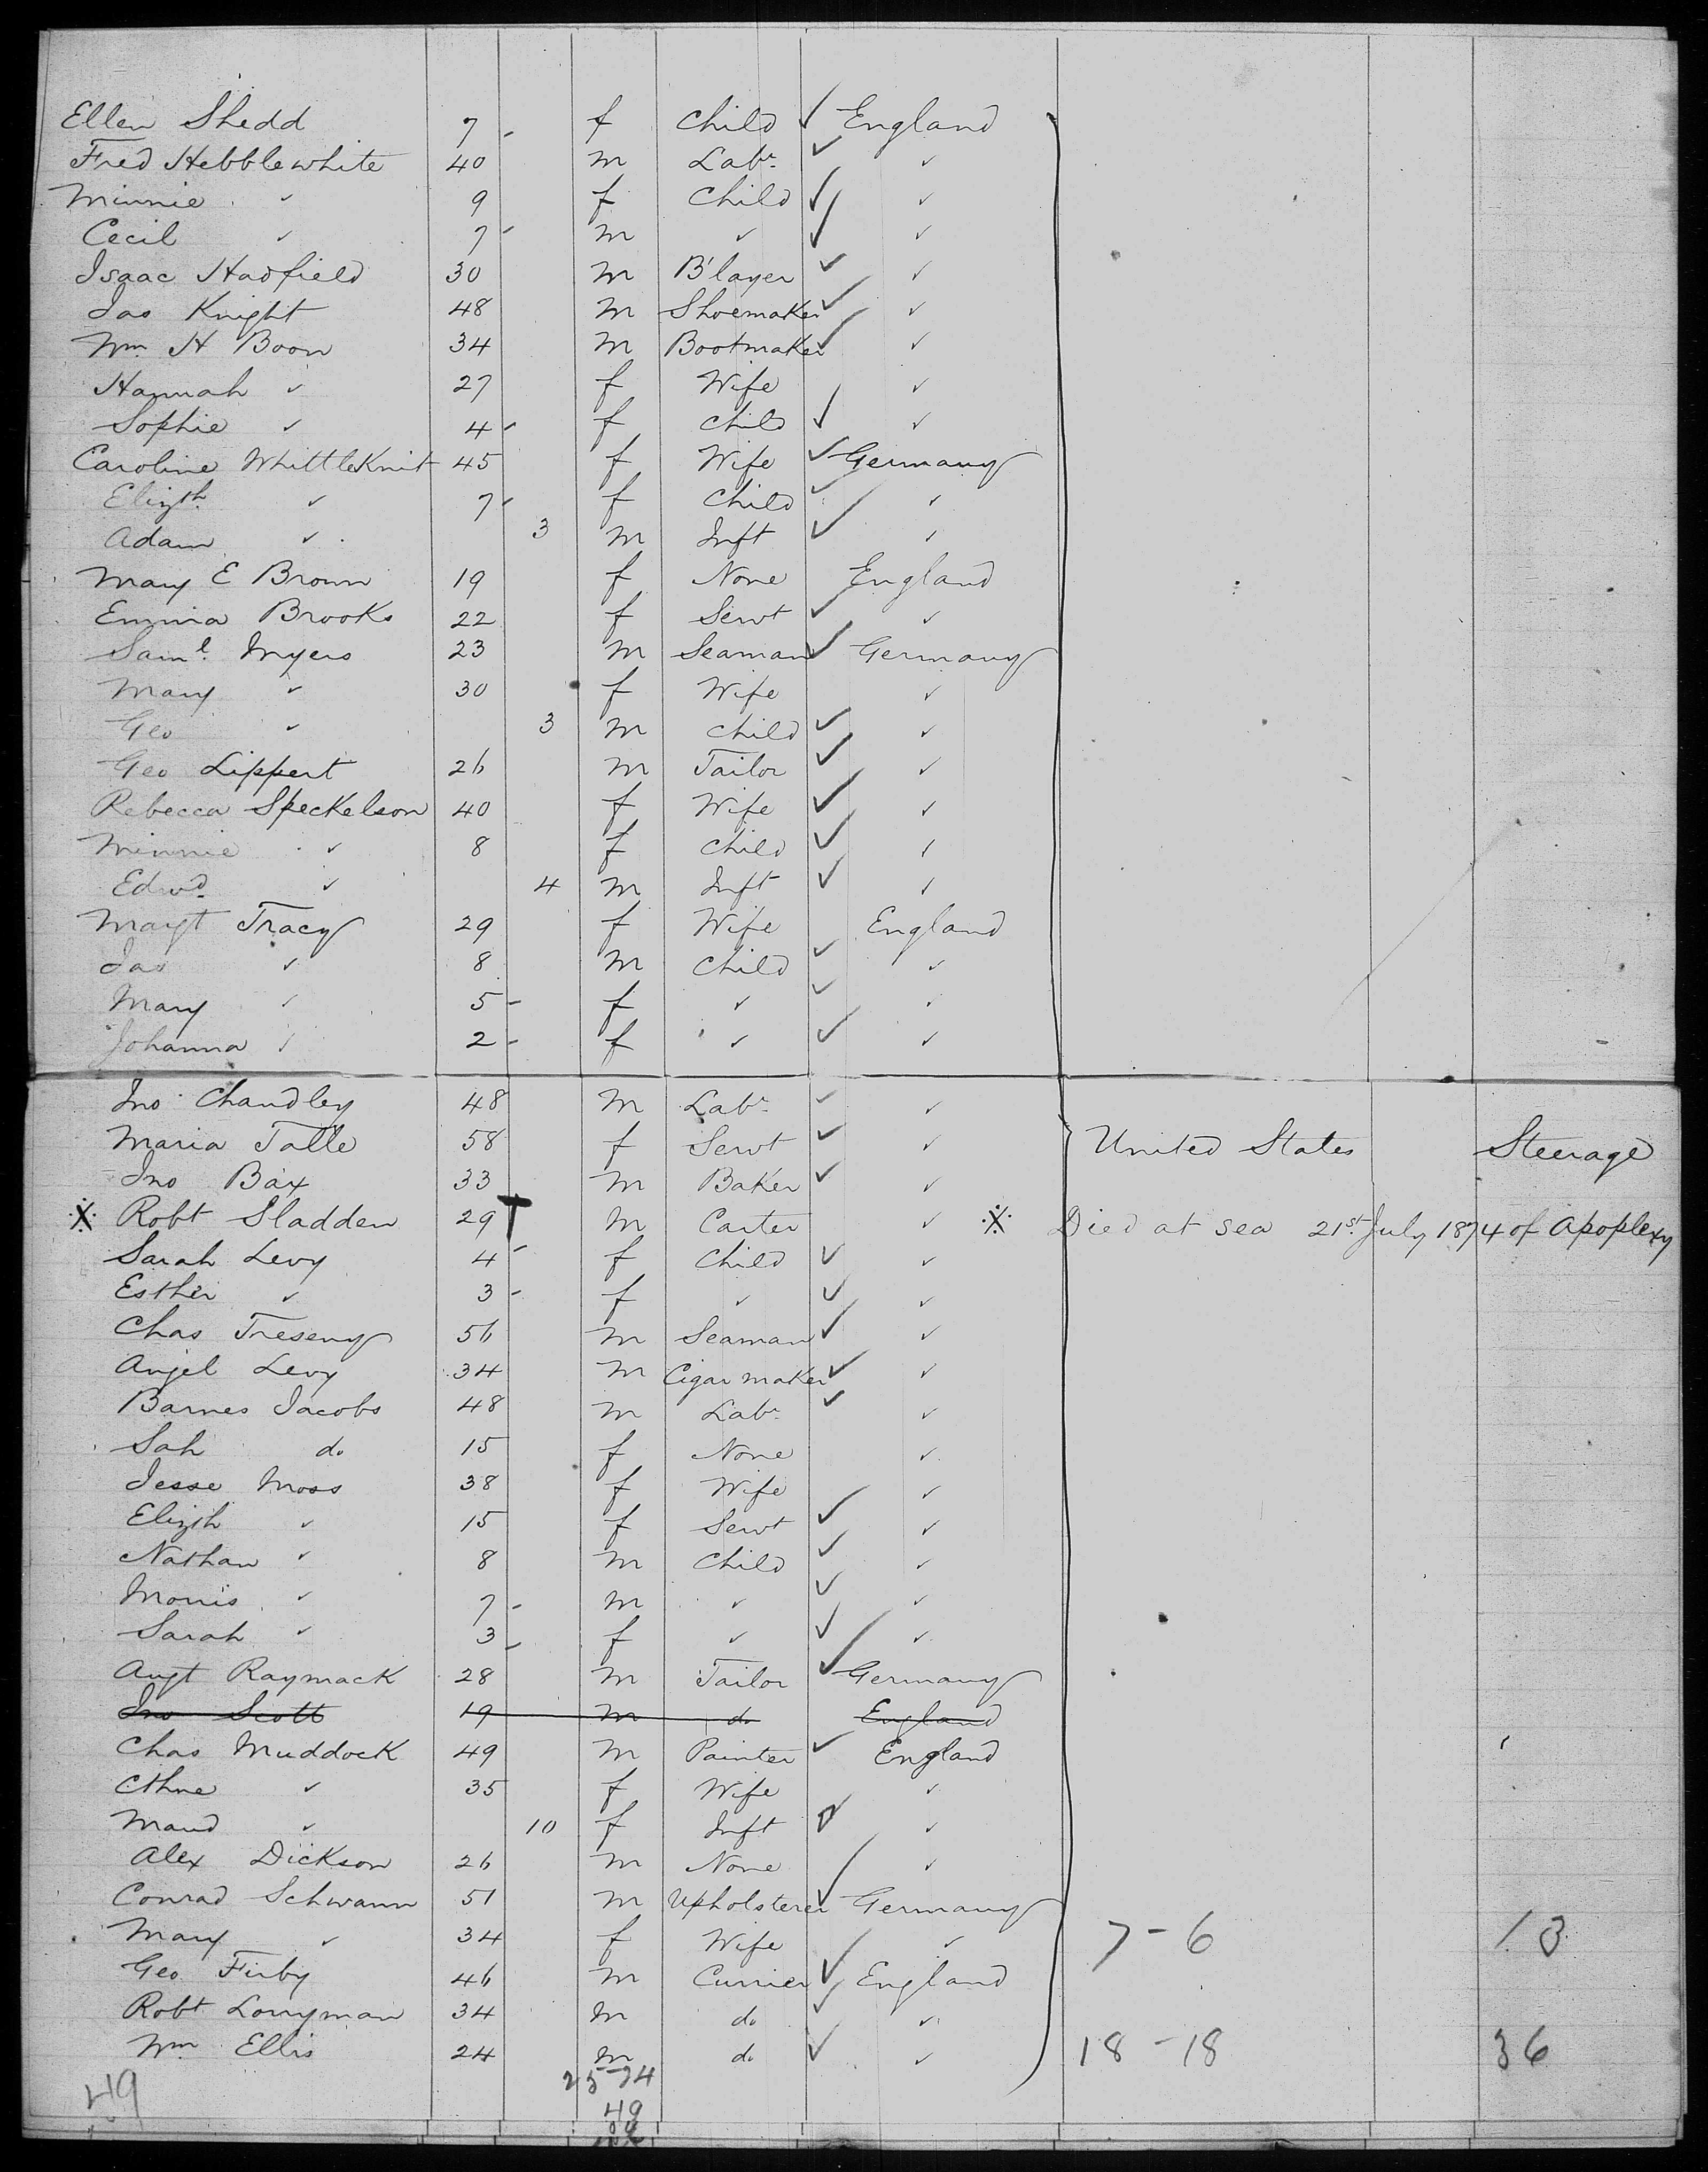 Ellen Shedd 7 - f Child ✓ England
Fred Hebblewhite 40 m Labr ✓ ✓
Minnie ✓ 9 f Child ✓ ✓
Cecil ✓ 7 - m ✓ ✓ ✓
Isaac Hadfield 30 m B'layer ✓ ✓
Jas Knight 48 m Shoemaker ✓ ✓
Wm H Boon 34 m Bootmaker ✓ ✓
Hannah ✓ 27 f Wife ✓
Sophie ✓ 4 - f Child ✓ ✓
Caroline WhittleKnit 45 f Wife ✓ Germany
Elizth ✓ 7 - f Child ✓ ✓
Adam ✓ 3 m Inft ✓ ✓
Mary E Brown 19 f None England
Emma Brooks 22 f Servt ✓ ✓
Saml. Myers 23 m Seaman ✓ Germany
Mary ✓ 30 f Wife ✓
Geo ✓ 3 m Child ✓ ✓
Geo Lippert 26 m Tailor ✓ ✓
Rebecca Speckelson 40 f Wife ✓ ✓
Minnie ✓ 8 f Child ✓ ✓
Edwd ✓ 4 m Inft ✓ ✓
Margt Tracy 29 f Wife England
Jas ✓ 8 m Child ✓ ✓
Mary ✓ 5 - f ✓ ✓ ✓
Johanna ✓ 2 - f ✓ ✓ ✓
Jno Chandley 48 m Labr ✓ ✓
Maria Talle 58 f Servt ✓ ✓ United States Steerage
Jno Bax 33 m Baker ✓ ✓
※ Robt Sladden 29 † m Carter ✓ ※ Died at sea 21st July 1874 of Apoplexy
Sarah Levy 4 - f Child ✓ ✓
Esther ✓ 3 - f ✓ ✓ ✓
Chas Treseny 56 m Seaman ✓ ✓
Angel Levy 34 m Cigar maker ✓ ✓
Barnes Jacobs 48 m Labr ✓ ✓
Sah do 15 f None ✓
Jesse Moss 38 f Wife ✓
Elizth ✓ 15 f Servt ✓ ✓
Nathan ✓ 8 m Child ✓ ✓
Morris ✓ 7 - m ✓ ✓ ✓
Sarah ✓ 3 - f ✓ ✓ ✓
Augt Raymack 28 m Tailor ✓ Germany
Jno Scott 19 m do England
Chas Muddock 49 m Painter ✓ England
Cthne ✓ 35 f Wife ✓
Maud ✓ 10 f Inft ✓ ✓
Alex Dickson 26 m None ✓
Conrad Schwann 51 m Upholsterer ✓ Germany
Mary ✓ 34 f Wife ✓ 7-6 13
Geo Firby 46 m Currier ✓ England
Robt Lonyman 34 m do ✓ ✓
Wm Ellis 24 m do ✓ ✓ 18-18 36
49 25-24
49